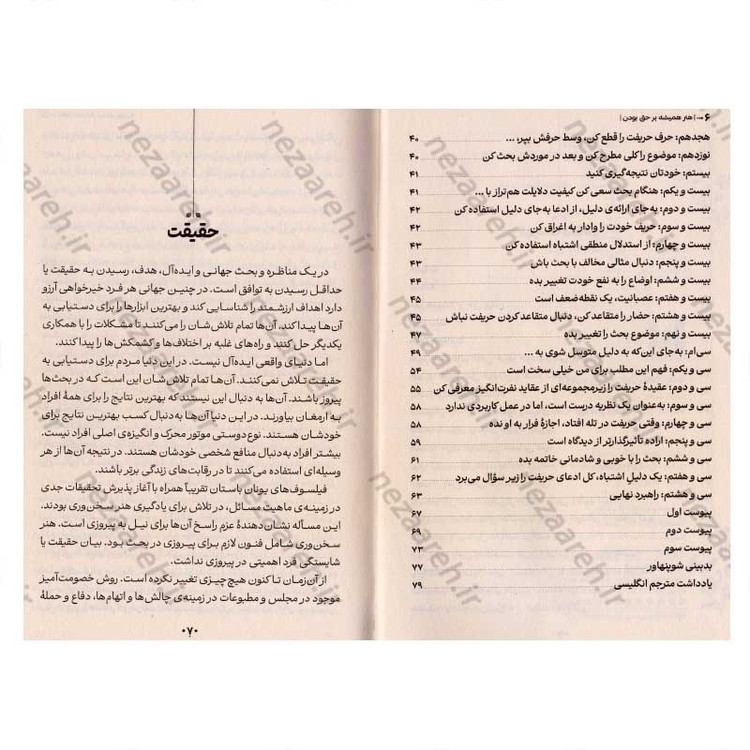 ۶ | هنر همیشه بر حق بودن |
هجدهم: حرف حریفت را قطع کن، وسط حرفش بپر، ... ۴۰
نوزدهم: موضوع را کلی مطرح کن و بعد در موردش بحث کن ۴۰
بیستم: خودتان نتیجه‌گیری کنید ۴۱
بیست و یکم: هنگام بحث سعی کن کیفیت دلایلت هم‌تراز با ... ۴۱
بیست و دوم: به‌جای ارائه‌ی دلیل، از ادعا به‌جای دلیل استفاده کن ۴۲
بیست و سوم: حریف خودت را وادار به اغراق کن ۴۲
بیست و چهارم: از استدلال منطقی اشتباه استفاده کن ۴۳
بیست و پنجم: دنبال مثالی مخالف با بحث باش ۴۳
بیست و ششم: اوضاع را به نفع خودت تغییر بده ۴۴
بیست و هفتم: عصبانیت، یک نقطه‌ضعف است ۴۵
بیست و هشتم: حضار را متقاعد کن، دنبال متقاعد کردن حریفت نباش ۴۵
بیست و نهم: موضوع بحث را تغییر بده ۴۷
سی‌ام: به‌جای این‌که به دلیل متوسل شوی به ... ۴۹
سی و یکم: فهم این مطلب برای من خیلی سخت است ۵۴
سی و دوم: عقیدهٔ حریفت را زیرمجموعه‌ای از عقاید نفرت‌انگیز معرفی کن ۵۵
سی و سوم: به‌عنوان یک نظریه درست است، اما در عمل کاربردی ندارد ۵۸
سی و چهارم: وقتی حریفت در تله افتاد، اجازهٔ فرار به او نده ۵۸
سی و پنجم: اراده تأثیرگذارتر از دیدگاه است ۵۹
سی و ششم: بحث را با خوبی و شادمانی خاتمه بده ۶۱
سی و هفتم: یک دلیلِ اشتباه، کل ادعای حریفت را زیر سؤال می‌برد ۶۲
سی و هشتم: راهبرد نهایی ۶۳
پیوست اول ۶۷
پیوست دوم ۶۹
پیوست سوم ۷۳
بدبینی شوپنهاور ۷۷
یادداشت مترجم انگلیسی ۷۹
حقیقت
در یک مناظره و بحث جهانی و ایده‌آل، هدف، رسیدن به حقیقت یا
حداقل رسیدن به توافق است. در چنین جهانی هر فرد خیرخواهی آرزو
دارد اهداف ارزشمند را شناسایی کند و بهترین ابزارها را برای دستیابی به
آن‌ها پیدا کند. آن‌ها تمام تلاش‌شان را می‌کنند تا مشکلات را با همکاری
یکدیگر حل کنند و راه‌های غلبه بر اختلاف‌ها و کشمکش‌ها را پیدا کنند.
اما دنیای واقعی ایده‌آل نیست. در این دنیا مردم برای دستیابی به
حقیقت تلاش نمی‌کنند. آن‌ها تمام تلاش شان این است که در بحث‌ها
پیروز باشند. آن‌ها به دنبال این نیستند که بهترین نتایج را برای همهٔ افراد
به ارمغان بیاورند. در این دنیا آن‌ها به‌دنبال کسب بهترین نتایج برای
خودشان هستند. نوع‌دوستی موتور محرک و انگیزه‌ی اصلی افراد نیست.
بیشتر افراد به‌دنبال منافع شخصی خودشان هستند. در نتیجه آن‌ها از هر
وسیله‌ای استفاده می‌کنند تا در رقابت‌های زندگی برتر باشند.
فیلسوف‌های یونان باستان تقریباً همراه با آغاز پذیرش تحقیقات جدی
در زمینه‌ی ماهیت مسائل، در تلاش برای یادگیری هنر سخن‌وری بودند.
این مسأله نشان‌دهندهٔ عزم راسخ آن‌ها برای نیل به پیروزی است. هنر
سخن‌وری شامل فنون لازم برای پیروزی در بحث بود. بیان حقیقت یا
شایستگی فرد اهمیتی در پیروزی نداشت.
از آن‌زمان تا کنون هیچ چیزی تغییر نکرده است. روش خصومت‌آمیز
موجود در مجلس و مطبوعات در زمینه‌ی چالش‌ها و اتهام‌ها، دفاع و حملهٔ
۰۷۰
nezaareh.ir